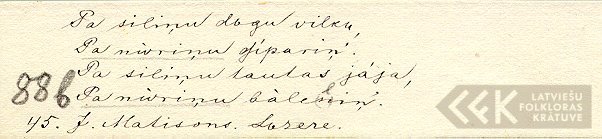 Pa siliņu dagu vilku,
Pa nūriņu dīpariņ'.
Pa siliņu tautas jāja,
886 Pa nūriņu bāleliņ'.
45. J. Matisons. Lozere.
LATVIEŠU
FOLKLORAS
KRĀTUVE